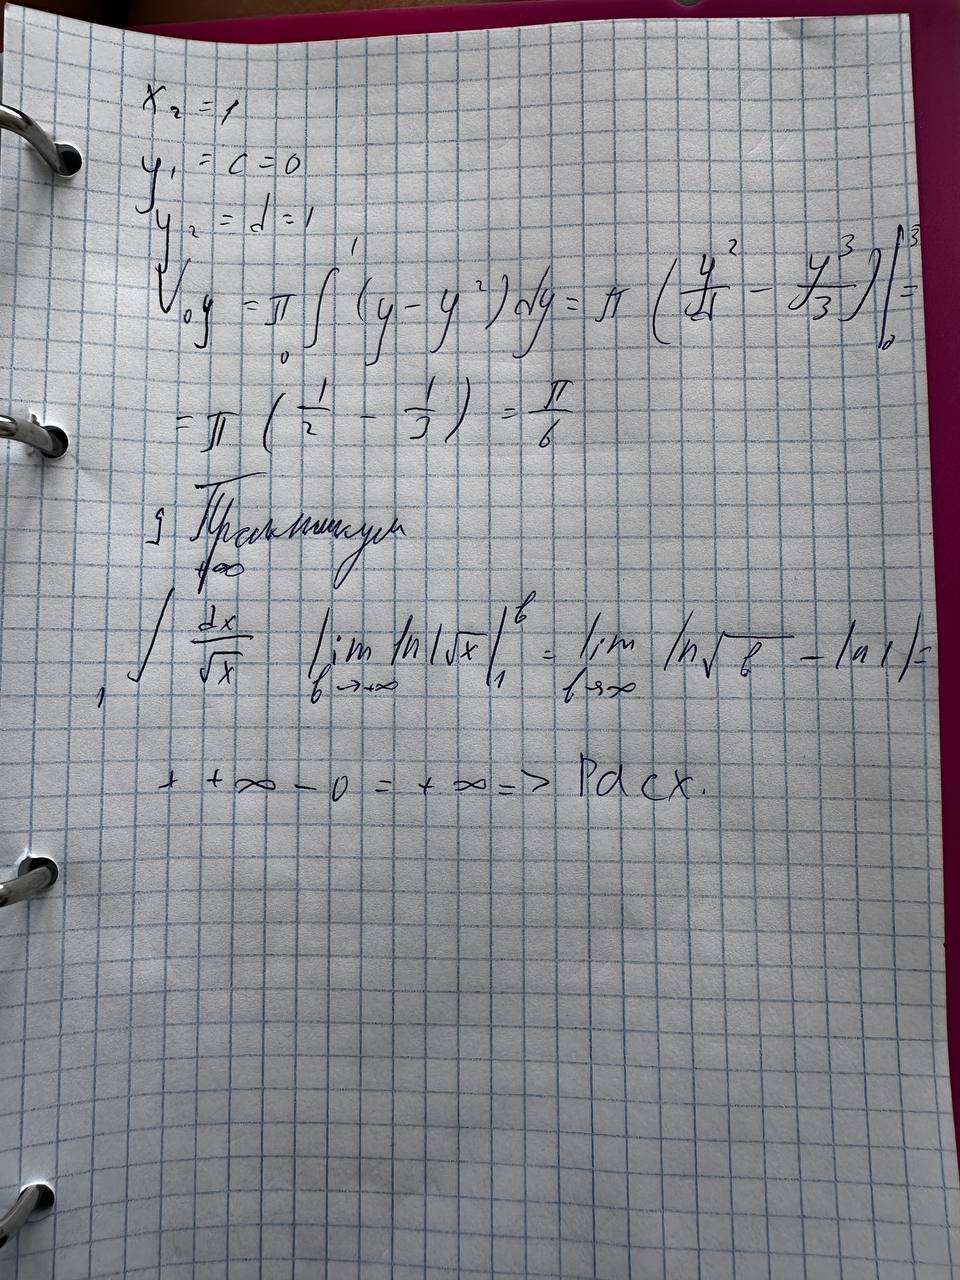 x₂ = 1
y₁ = c = 0
y₂ = d = 1
V₀y = π ∫₀¹ (y − y²) dy = π (y²/2 − y³/3) |₀³ =
= π (1/2 − 1/3) = π/6
9 Практикум
₁∫⁺∞ dx/√x lim b→+∞ ln|√x||₁ᵇ = lim b→∞ ln√b − ln1| =
+ +∞ − 0 = +∞ => Расх.